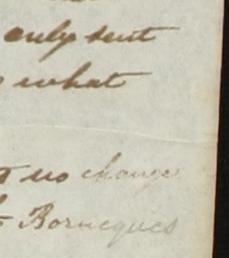 only sent
what
no change
Borneques